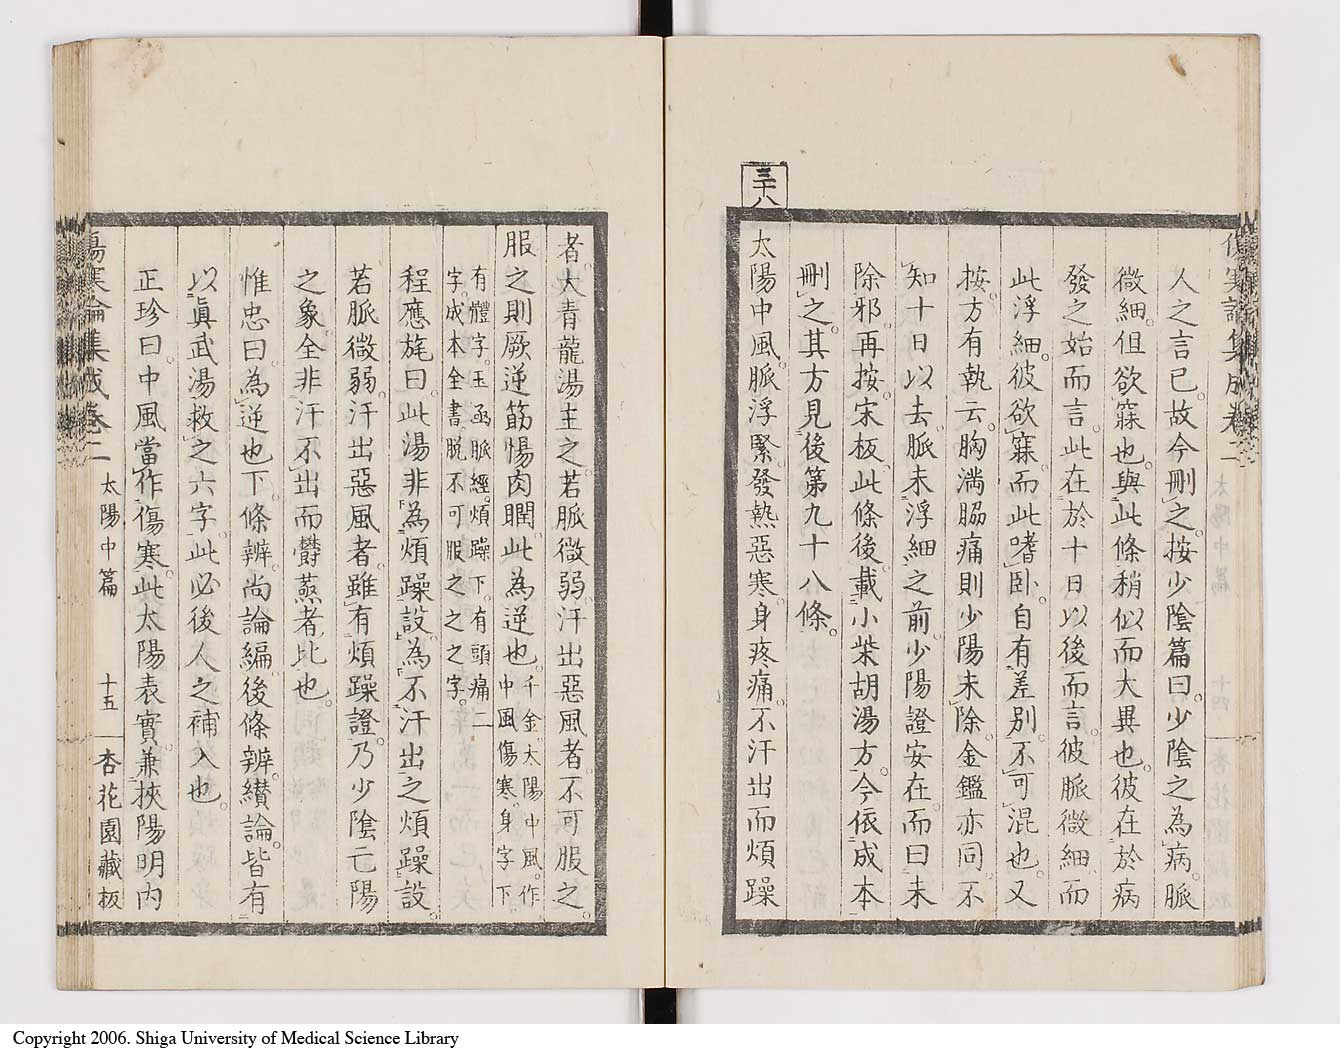 傷寒論集成卷二 太陽中篇 十四 杏花園藏板
人之言已。故今刪之。按少陰篇曰。少陰之為病。脈
微細。但欲寐也。與此條稍似而大異也。彼在於病
發之始而言。此在於十日以後而言。彼脈微細而
此浮細。彼欲寐。而此嗜臥。自有差別。不可混也。又
按。方有執云。胸滿脇痛則少陽未除。金鑑亦同。不
知十日以去。脈未浮細之前。少陽證安在。而曰未
除邪。再按。宋板。此條後。載小柴胡湯方。今依成本
刪之。其方見後第九十八條。
三十八
太陽中風。脈浮緊。發熱惡寒。身疼痛。不汗出而煩躁
者。大青龍湯主之。若脈微弱。汗出惡風者。不可服之。
服之則厥逆筋惕肉瞤。此為逆也。千金。太陽中風。作中風傷寒。身字下
有體字。玉函脈經。煩躁下。有頭痛二字。成本全書。脫不可服之之之字。
程應旄曰。此湯非為煩躁設。為不汗出之煩躁設。
若脈微弱。汗出惡風者。雖有煩躁證。乃少陰亡陽
之象。全非汗不出而鬱蒸者比也。
惟忠曰。為逆也下。條辨。尚論編。後條辨。纘論。皆有
以真武湯救之六字。此必後人之補入也。
正珍曰。中風當作傷寒。此太陽表實。兼挾陽明內
傷寒論集成卷二 太陽中篇 十五 杏花園藏板
Copyright 2006. Shiga University of Medical Science Library